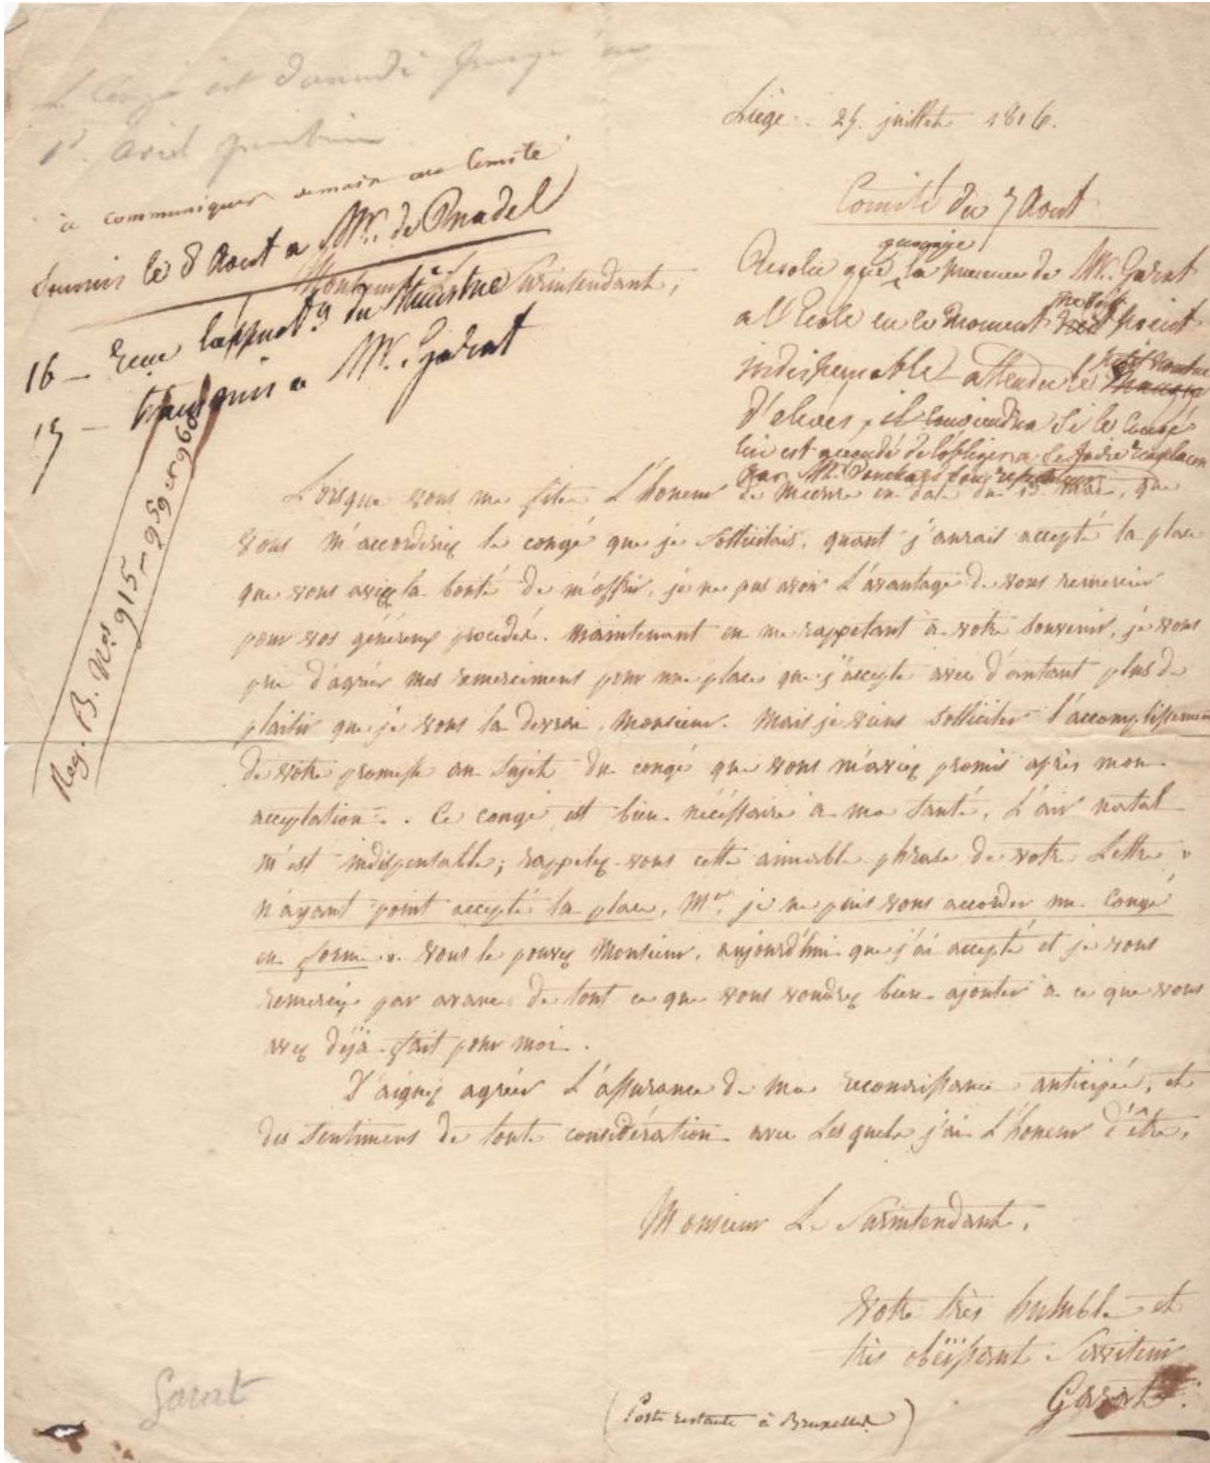 Le Congé est demandé jusqu'au
1er avril prochain
à communiquer demain au Comité
Soumis le 8 Aout a Mr. de Pradel
16 — Reçu l'approbon du Ministre
17 — transmis a Mr. Garat
Reg. B. Nos 915 — 959 et 960
Liège. 25. juillet 1816.
Comité du 7 Aout
Resolu que quoique la presence de Mr. Garat
a l'Ecole en ce moment ne soit point
indispensable attendu le petit nombre
d'eleves, il conviendra si le Congé
lui est accordé de l'obliger a se faire remplacer
par Mr. Ponchard son repetiteur
Monsieur le Surintendant,
Lorsque vous me fites L'honeur de m'ecrire en date du 15 , que
vous m'accorderiez le congé que je sollicitais, quant j'aurais accepté la place
que vous aviez la bonté de m'offrir, je ne pus avoir L'avantage de vous remercier
pour vos généreux procedés. maintenant en me rappelant à votre souvenir, je vous
prie d'agréer mes remerciment pour une place que j'accepte avec d'autant plus de
plaisir que je vous la devrai, monsieur. mais je viens solliciter l'accomplissement
de votre promesse au sujet du congé que vous m'aviez promis après mon
acceptation. Ce congé est bien nécéssaire à ma santé, L'air natal
m'est indispensable; rappelez-vous cette aimable phrase de votre Lettre "
n'ayant point accepté la place, Mr, je ne puis vous accorder un Congé
en forme ". vous le pouvez Monsieur, aujourd'hui que j'ai accepté et je vous
remercie par avance de tout ce que vous voudrez bien ajouter à ce que vous
avez déjà fait pour moi.
D'aignez agréer L'assurance de ma reconaissance anticipée, et
des sentimens de toute considération avec Lesquels j'ai L'honeur d'être,
Monsieur Le Surintendant,
Votre très humble et
très obéissant Serviteur
Garat.
(Poste restante à Bruxelles)
Garat